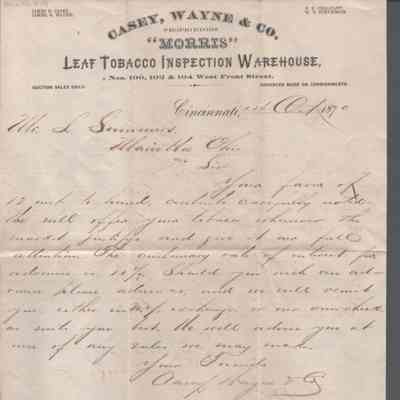 CASEY, WAYNE & CO.
PROPRIETORS
"MORRIS"
LEAF TOBACCO INSPECTION WAREHOUSE,
Nos. 100, 102 & 104 West Front Street.
AUCTION SALES DAILY.
ADVANCES MADE ON CONSIGNMENTS.
Cincinnati, Oct 187
Mr. L
Marietta Ohio
Sir
Your favor of
12 inst to hand, contents carefully noted
We will your tobacco whenever the
market and give it our full
attention The customary rate of interest for
advances is 10% Should you wish an ad-
vance please advise us, and we will remit
you either in exchange or our own check
as suits you best We will advise you at
once of any sales we may make.
Your Friends
Casey Wayne & Co